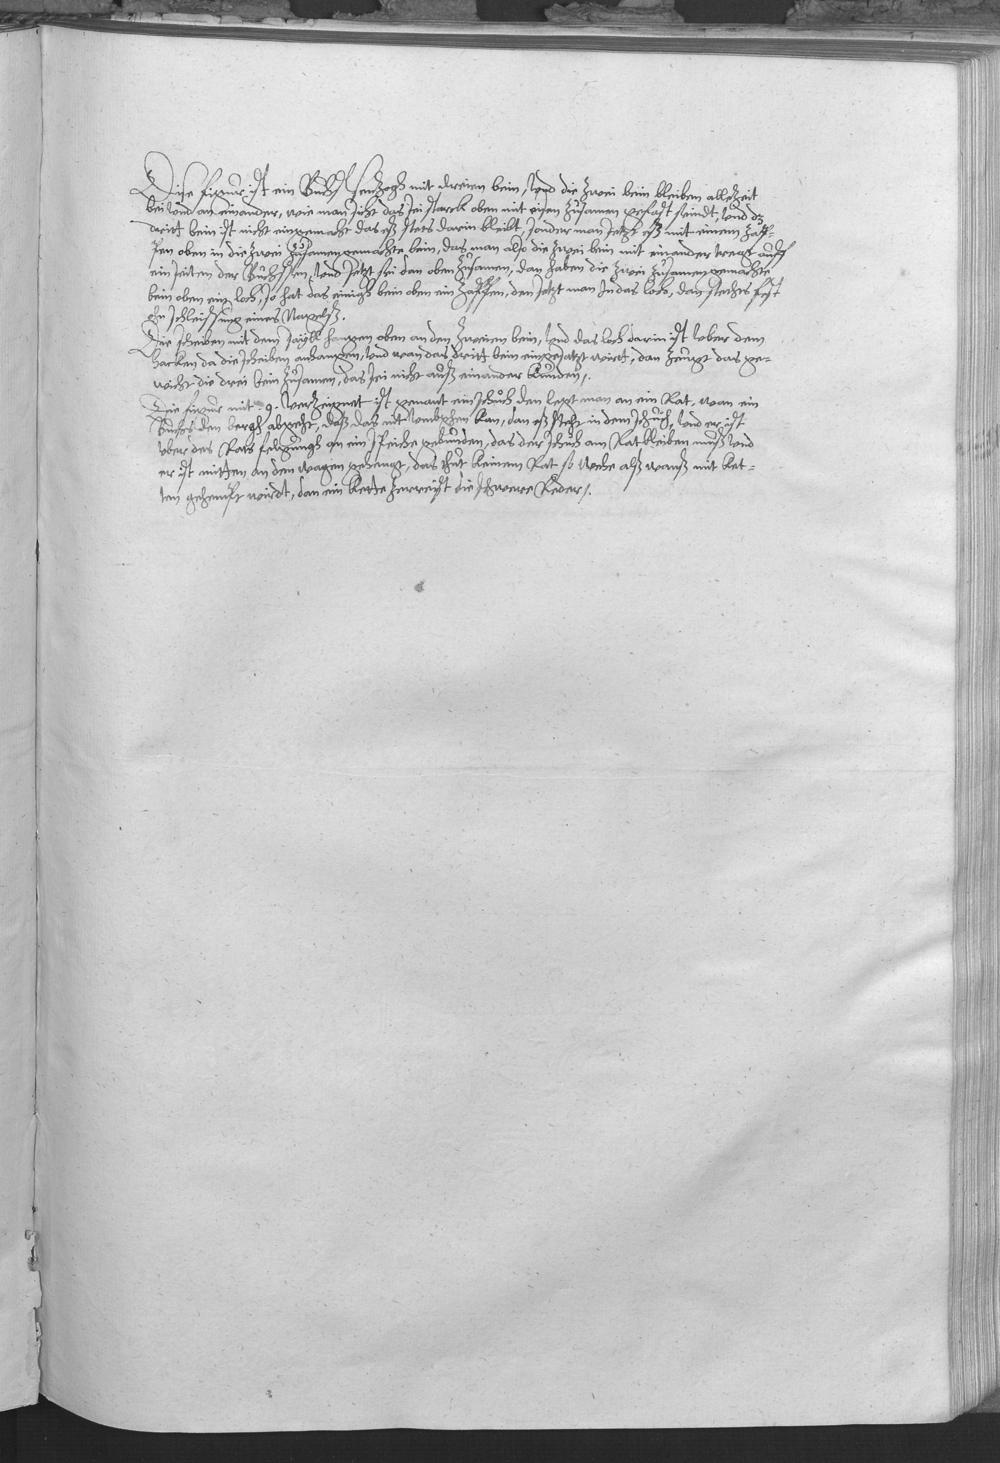 Dise figur ist ein Büchssenzogh mit dreien bein, vnd die zwei bein bleiben allezeit
bei vnd an einander, wie man sicht das sei starck oben mit eisen züsamen gefast seindt, vnd dz
dritt bein ist nicht eingemacht das eß stets darin bleibt, sonder man setzt eß mit einem zapf-
fen oben in die zwei züsamengemachte bein, das man also die zwei bein mit einander tregt auff
ein seiten der Büchssen, vnd setzt sei dan oben züsamen, dan haben die zwei züsamengemachte
bein oben ein loch, so hat das einigh bein oben ein zapffen, den setzt man in das loch, dan stehets fest
ohn schleissung eines Nagelß.
Die scheiben mit dem seyll hangen oben an den zweien bein, vnd das loch darin ist vber dem
hacken da die scheiben anhangen, vnd wan das dritt bein eingesatzt wirtt, dan zeügt das ge-
wicht die drei bein züsamen, das sei nicht auß einander künden /.
Die figur mit .9. verzeignet ist genant ein schüch den legt man an ein Rat, wan ein
Büchs den bergh abgeht, daß das nit vmbgehen kan, dan eß steht in dem schüch, vnd er ist
vber des Rats felgüngh an ein speiche gebünden, das der schüch am Rat bleiben müß vnd
er ist mitten an den wagen gehengt, das thüt keinem Rat so wehe alß wanß mit ket-
ten gehempt wirdt, dan ein kette zerreist die schwere Reder /.